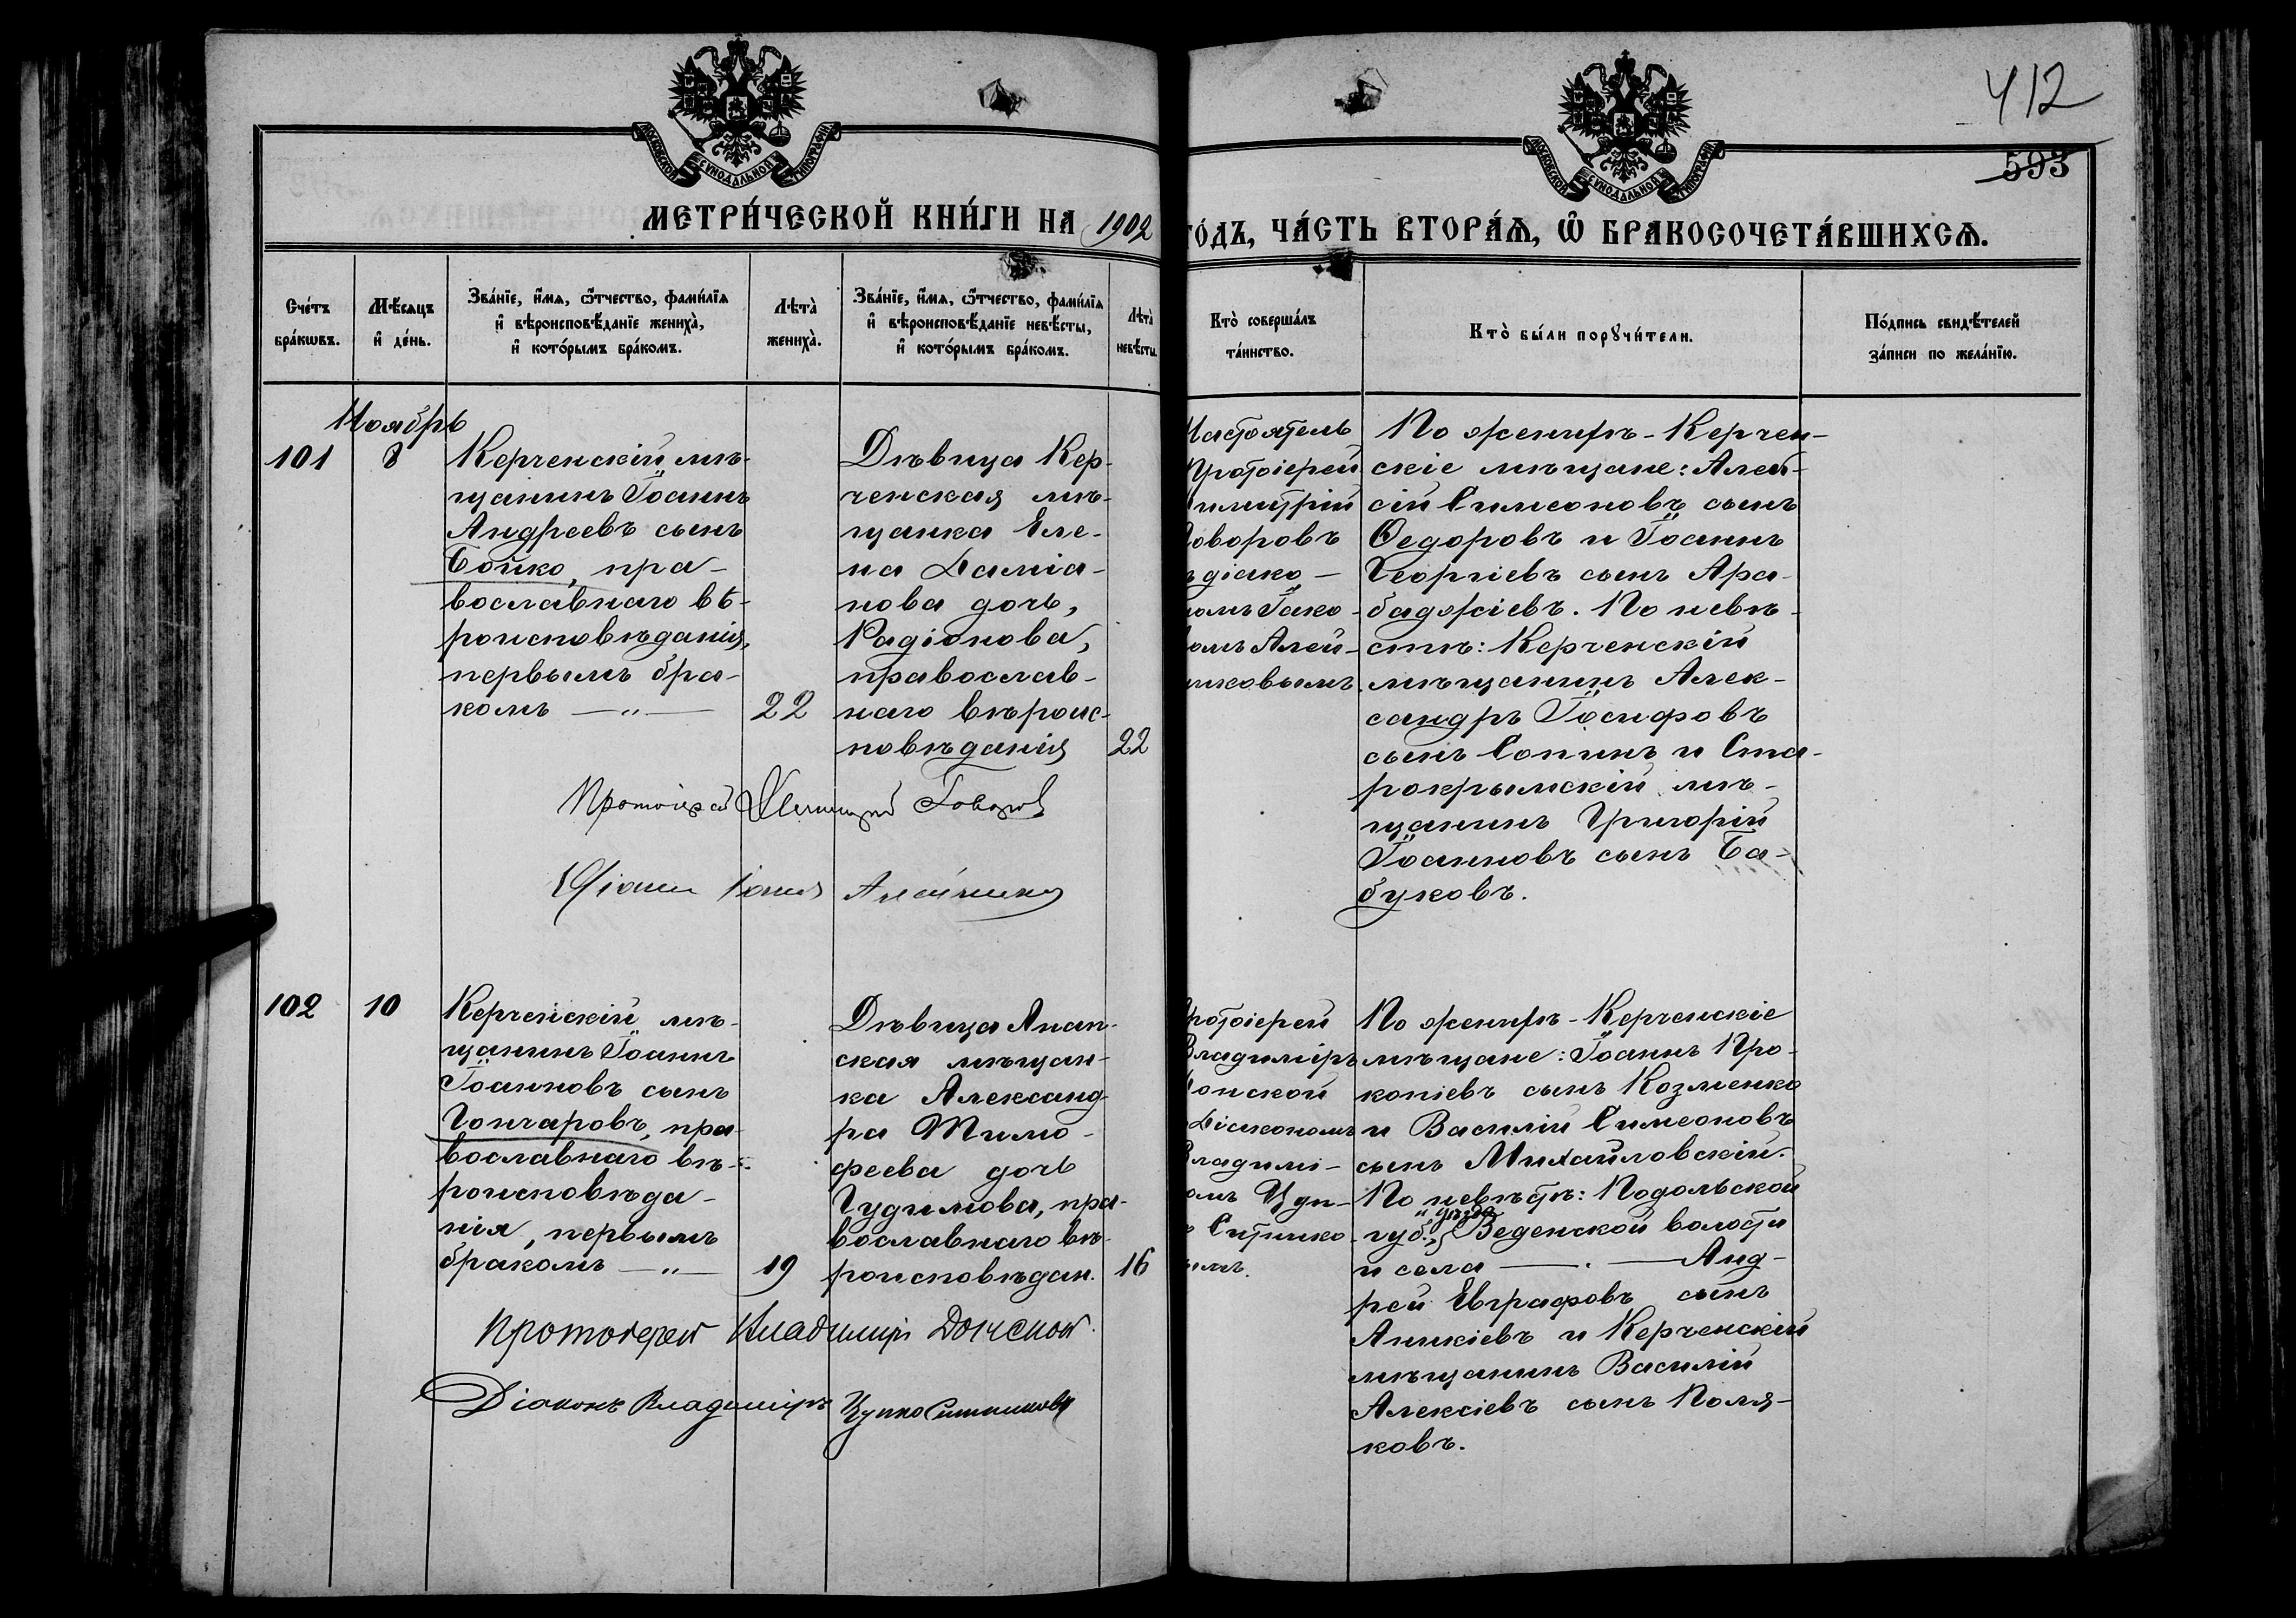 412
593
МОСКОВСКОЙ СѴНОДАЛЬНОЙ ТИПОГРАФІИ
МОСКОВСКОЙ СѴНОДАЛЬНОЙ ТИПОГРАФІИ
МЕТРИ́ЧЕСКОЙ КНИ́ГИ НА 1902 ГО́ДЪ, ЧА́СТЬ ВТОРА́Ѧ, Ѽ БРАКОСОЧЕТА́ВШИХСѦ.
Сче́тъ
бра́кѡвъ.
Мѣ́сѧцъ
и҆ де́нь.
Зва́нїе, и҆́мѧ, ѻ҆́тчество, фами́лїѧ
и҆ вѣроисповѣ́данїе жениха̀,
и҆ кото́рымъ бра́комъ.
Лѣта̀
жениха̀.
Зва́нїе, и҆́мѧ, ѻ҆́тчество, фами́лїѧ
и҆ вѣроисповѣ́данїе невѣ́сты,
и҆ кото́рымъ бра́комъ.
Лѣта̀
невѣ́сты.
Кто̀ соверша́лъ
та́инство.
Кто̀ бы́ли порꙋчи́тели.
По́дпись свидѣ́телей
за́писи по жела́нїю.
Ноябрь
101
8
Керченскій мѣ-
щанинъ Іоаннъ
Андреевъ сынъ
Бойко, пра-
вославнаго вѣ-
роисповѣданія,
первымъ бра-
комъ — „ —
22
Дѣвица Кер-
ченская мѣ-
щанка Еле-
на Даміа-
нова дочь,
Радіонова,
православ-
наго вѣроис-
повѣданія
22
Настоятель
Протоіерей
Димитрій
Говоровъ
ъ діако-
номъ Іако-
вомъ Алей-
никовымъ.
По женихѣ - Керчен-
скіе мѣщане: Алек-
сій Симеоновъ сынъ
Ѳедоровъ и Іоаннъ
Георгіевъ сынъ Ара-
баджіевъ. По невѣ-
стѣ: Керченскій
мѣщанинъ Алек-
сандръ Іосифовъ
сынъ Сопинъ и Ста-
рокрымскій мѣ-
щанинъ Григорій
Іоанновъ сынъ Ба-
буковъ.
Протоіерей Димитрій Говоровъ
Діаконъ Іаковъ Алейников
102
10
Керченскій мѣ-
щанинъ Іоаннъ
Іоанновъ сынъ
Гончаровъ, пра-
вославнаго вѣ-
роисповѣда-
нія, первымъ
бракомъ — „ —
19
Дѣвица Анап-
ская мѣщан-
ка Александ-
ра Тимо-
феева дочь
Чудимова, пра-
вославнаго вѣ-
роисповѣдан.
16
Протоіерей
Владиміръ
Донской
Діакономъ
Владимі-
омъ Цуп-
Ситнико-
ымъ.
По женихѣ - Керченскіе
мѣщане: Іоаннъ Про-
копіевъ сынъ Козменко
и Василій Симеоновъ
сынъ Михайловскій.
По невѣстѣ: Подольской
и уѣзда
губ., Веденской волости
и села — . — Анд-
рей Евграфовъ сынъ
Аникіевъ и Керченскій
мѣщанинъ Василій
Алексіевъ сынъ Поля-
ковъ.
Протоіерей Владиміръ Донской.
Діаконъ Владиміръ Цупко Ситниковъ